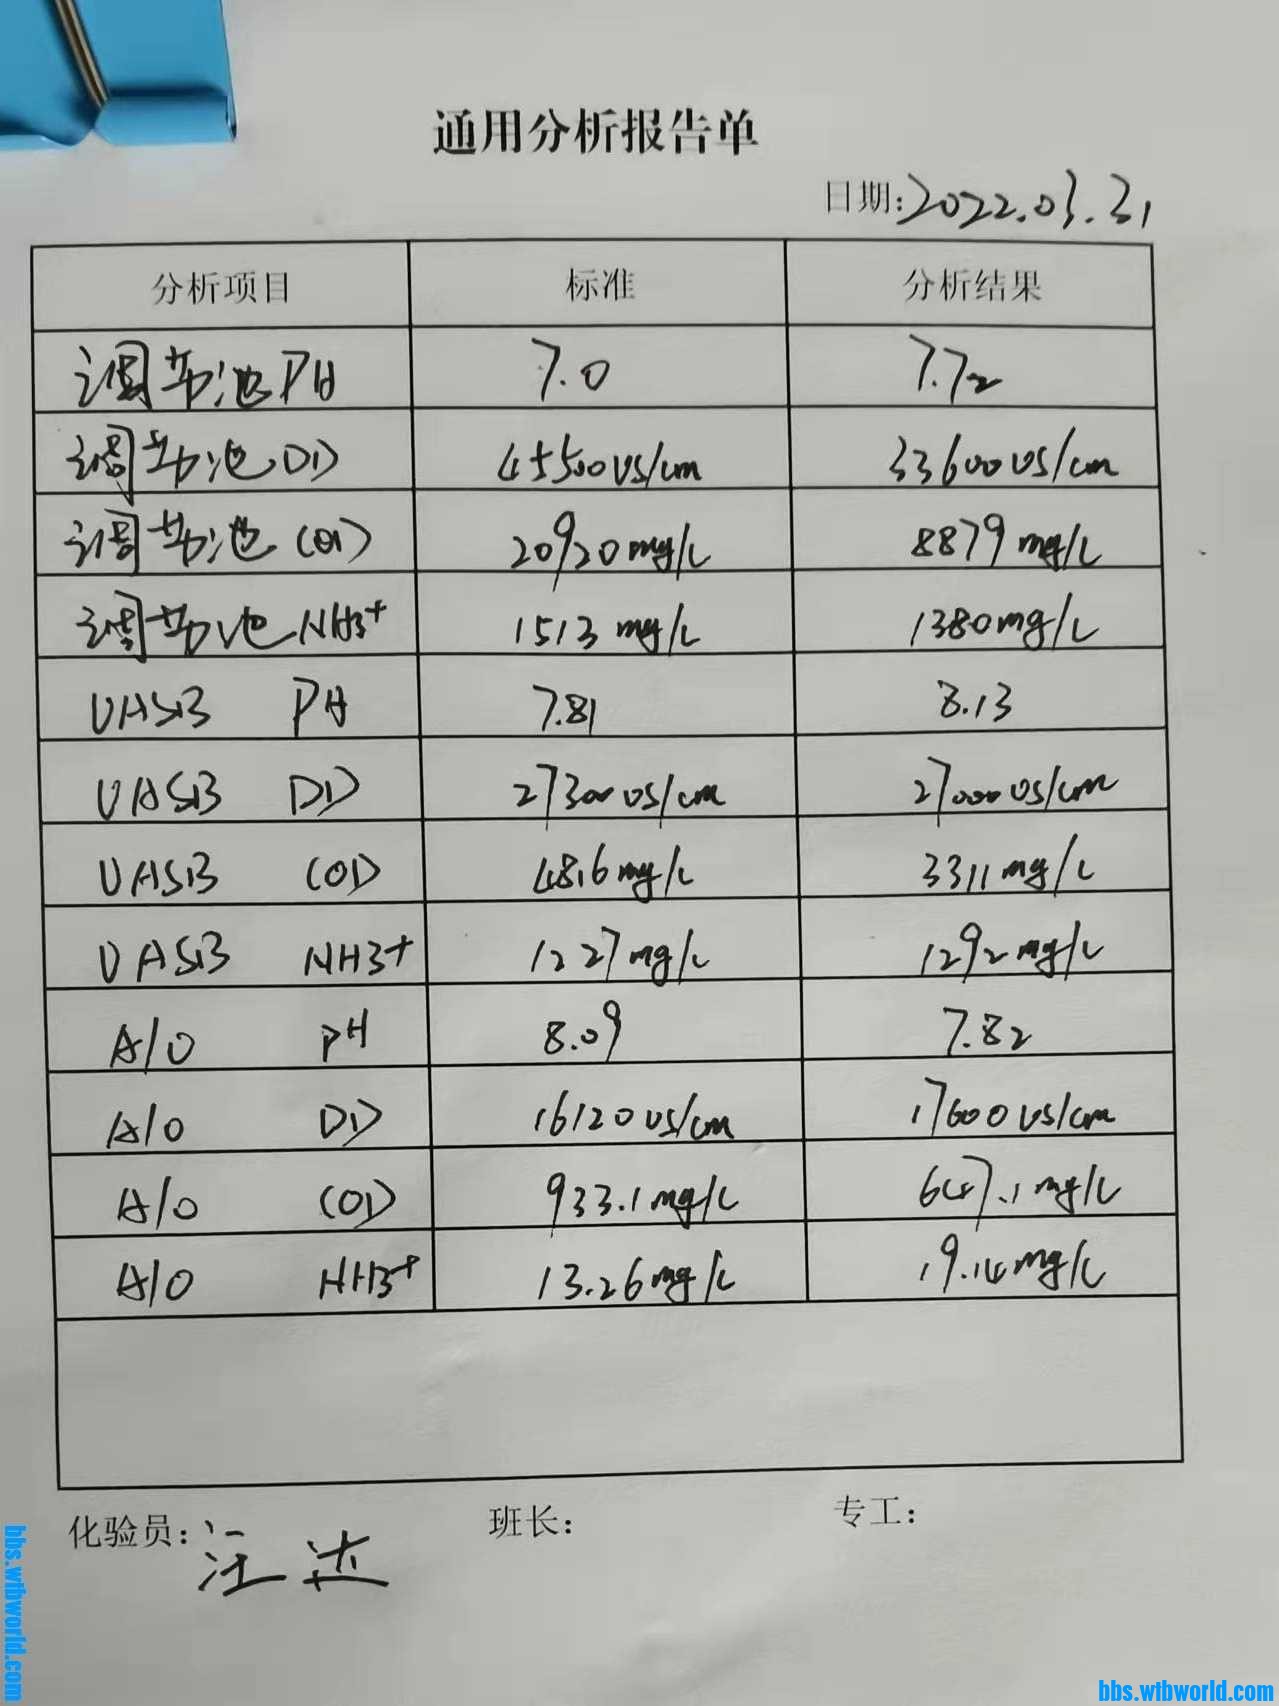 通用分析报告单
日期:2022.03.31
分析项目 标准 分析结果
调节池PH 7.0 7.72
调节池DD 45500us/cm 33600us/cm
调节池COD 20920mg/L 8879mg/L
调节池NH3+ 1513mg/L 1380mg/L
UASB PH 7.81 8.13
UASB DD 27300us/cm 27000us/cm
UASB COD 4816mg/L 3311mg/L
UASB NH3+ 1227mg/L 1292mg/L
A/O PH 8.09 7.82
A/O DD 16120us/cm 17600us/cm
A/O COD 933.1mg/L 647.1mg/L
A/O NH3+ 13.26mg/L 19.14mg/L
化验员:汪达 班长: 专工:
bbs.wtbworld.com
bbs.wtbworld.com